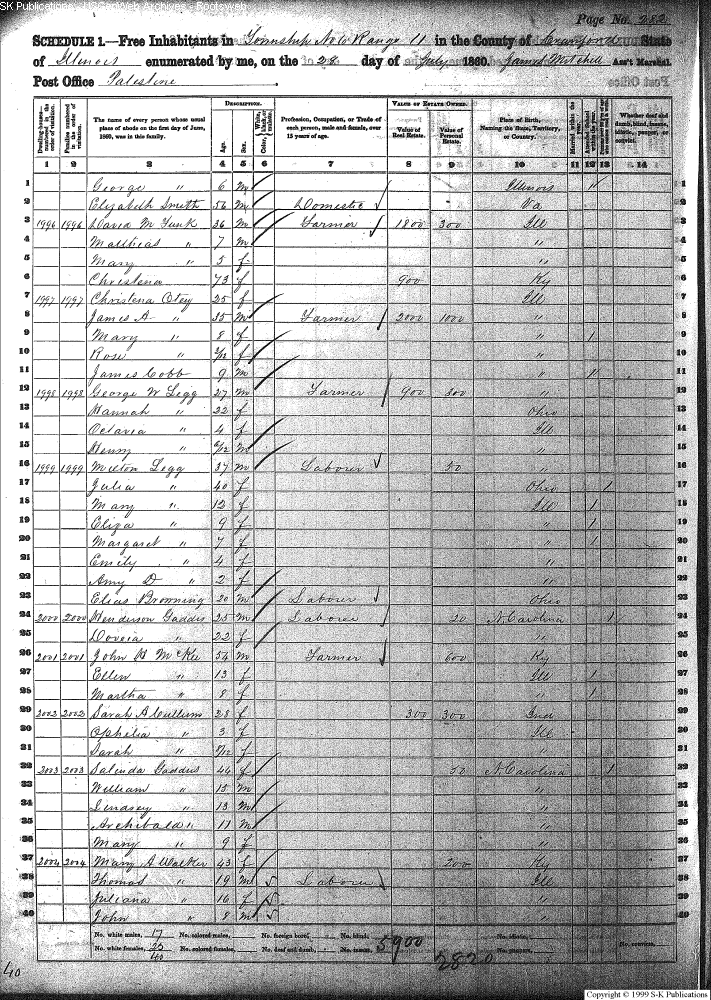 S-K Publications - USGenWeb Archives - Rootsweb
Page No. 282
SCHEDULE 1.—Free Inhabitants in Township No 6 Range 11 in the County of Crawford State
of Illinois enumerated by me, on the 28 day of July 1860. James Mitchell Ass't Marshal.
Post Office Palestine
DESCRIPTION. VALUE OF ESTATE OWNED.
Dwelling-houses numbered in the order of visitation. Families numbered in the order of visitation. The name of every person whose usual place of abode on the first day of June, 1860, was in this family. Age. Sex. Color, White, black, or mulatto. Profession, Occupation, or Trade of each person, male and female, over 15 years of age. Value of Real Estate. Value of Personal Estate. Place of Birth, Naming the State, Territory, or Country. Married within the year. Attended School within the year. Whether deaf and dumb, blind, insane, idiotic, pauper, or convict.
1 2 3 4 5 6 7 8 9 10 11 12 13 14
1 George " 6 m Illinois 1
2 Elizabeth Smith 56 m Domestic Va
3 1996 1996 David M Funk 36 m Farmer 1800 300 Ill 3
4 Matthias " 7 m " 4
5 Mary " 5 f " 5
6 Christena 73 f 900 Ky 6
7 1997 1997 Christena Otey 25 f Ill 7
8 James A " 35 m Farmer 2000 1000 " 8
9 Mary " 8 f " 1 9
10 Rose " f " 10
11 James Cobb 9 m " 11
12 1998 1998 George W Legg 27 m Farmer 900 300 " 12
13 Hannah " 22 f Ohio 13
14 Octavia " 4 f Ill 14
15 Henry " m " 15
16 1999 1999 Milton Legg 37 m Laborer 50 " 16
17 Julia " 40 f Ohio 1 17
18 Mary " 12 f Ill 1 18
19 Eliza " 9 f " 1 19
20 Margaret " 7 f " 1 20
21 Emily " 4 f " 21
22 Amy D " 2 f " 22
23 Elias Browning 20 m Laborer Ohio 23
24 2000 2000 Henderson Gaddis 25 m Laborer 20 N Carolina 1 24
25 " 22 f " 25
26 2001 2001 John H McKee 54 m Farmer 600 Ky 26
27 Ellen " 13 f Ill 1 27
28 Martha " 8 f " 1 28
29 2002 2002 Sarah A Cullum 28 f 300 300 29
30 Ophelia " 3 f Ill
31 Sarah " f "
32 2003 2003 Salinda Gaddis 46 f 50 N Carolina 1 32
33 William " 15 m "
34 Lindsey " 13 m "
35 Archibald " 11 m "
36 Mary " 9 f "
37 2004 2004 Mary A Walker 43 f 200 Ky 37
38 Thomas " 19 m Laborer Ill 38
39 Juliana " 16 f " 39
40 John " 8 m " 40
No. white males, 17 No. colored males, No. foreign born, No. blind, 5900 No. idiotic,
No. white females, 23 No. colored females, No. deaf and dumb, No. insane, 2820 No. paupers, No. convicts,
40
40
Copyright © 1999 S-K Publications